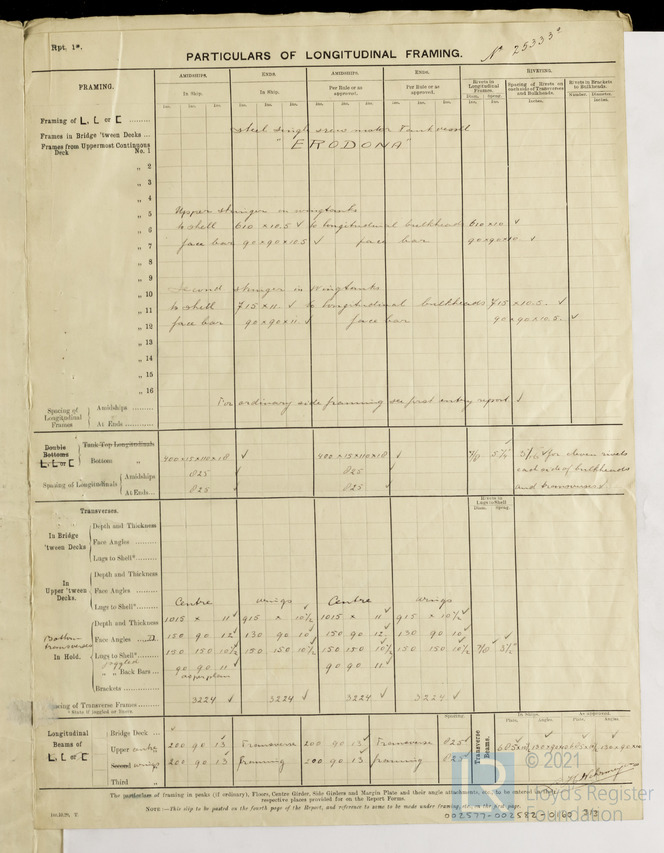 Rpt. 1*.
No 25333e
PARTICULARS OF LONGITUDINAL FRAMING.
FRAMING.
AMIDSHIPS. ENDS. AMIDSHIPS. ENDS. RIVETING.
In Ship. In Ship. Per Rule or as approved. Per Rule or as approved. Rivets in Longitudinal Frames. Spacing of Rivets on each side of Transverses and Bulkheads. Rivets in Brackets to Bulkheads.
Ins. Ins. Ins. Ins. Ins. Ins. Ins. Ins. Ins. Ins. Ins. Ins. Diam. Spcng. Inches. Number. Diameter.
Ins. Ins. Inches.
Framing of L, L or [ .........
Steel single screw motor Tank vessel
Frames in Bridge 'tween Decks ...
"ERODONA"
Frames from Uppermost Continuous Deck No. 1
„ 2
„ 3
„ 4
„ 5 Upper stringer in wingtanks
„ 6 to shell 610 × 10.5 ✓ to longitudinal bulkheads 610×10 ✓
„ 7 face bar 90×90×10.5 ✓ face bar 90×90×10 ✓
„ 8
„ 9
„ 10 Second stringer in wingtanks
„ 11 to shell 715 × 11. ✓ to longitudinal bulkheads 715 × 10.5. ✓
„ 12 face bar 90×90×11. ✓ face bar 90×90×10.5. ✓
„ 13
„ 14
„ 15
„ 16
Spacing of Longitudinal Frames
Amidships .........
For ordinary side framing see first entry report ✓
At Ends .........
Double Bottoms L, L or [
Tank Top Longitudinals
Bottom „ ✓ ✓ for eleven rivets
Spacing of Longitudinals
Amidships 825 ✓ 825 ✓ each side of bulkheads
At Ends... 825 ✓ 825 ✓ and transverses
Transverses.
Rivets in Lugs to Shell
Diam. Spcng.
In Bridge 'tween Decks
Depth and Thickness
Face Angles .........
Lugs to Shell*.........
In Upper 'tween Decks.
Depth and Thickness
Face Angles .........
Lugs to Shell*.........
Centre wings Centre wings
Bottom transverses In Hold.
Depth and Thickness 1015 × 11 ✓ 915 × 10½ ✓ 1015 × 11 ✓ 915 × 10½ ✓
Face Angles ...... 150 90 12 ✓ 130 90 10 ✓ 150 90 12 ✓ 130 90 10 ✓
Lugs to Shell*...... 150 150 10½ 150 150 10½ 150 150 10½ 150 150 10½
joggled
„ „ Back Bars ... 90 90 11 ✓ 90 90 11 ✓
Brackets .........
Spacing of Transverse Frames ...... 3224 ✓ 3224 ✓ 3224 ✓ 3224 ✓
* State if joggled or liners.
Spacing. In Ship. As approved.
Plate. Angles. Plate. Angles.
Longitudinal Beams of L, L or [
Bridge Deck ... ✓
Upper centre „ 200 90 13 ✓ Transverse 200 90 13 ✓ Transverse 825 ✓
Second wings „ 200 90 13 ✓ framing 200 90 13 ✓ framing 825 ✓
Third „
Transverse Beams.
The particulars of framing in peaks (if ordinary), Floors, Centre Girder, Side Girders and Margin Plate and their angle attachments, etc., to be entered in their
respective places provided for on the Report Forms.
NOTE:—This slip to be pasted on the fourth page of the Report, and reference to same to be made under framing, etc., on the 3rd page.
002577-002582-0160 2/3
© 2021
Lloyd's Register
Foundation